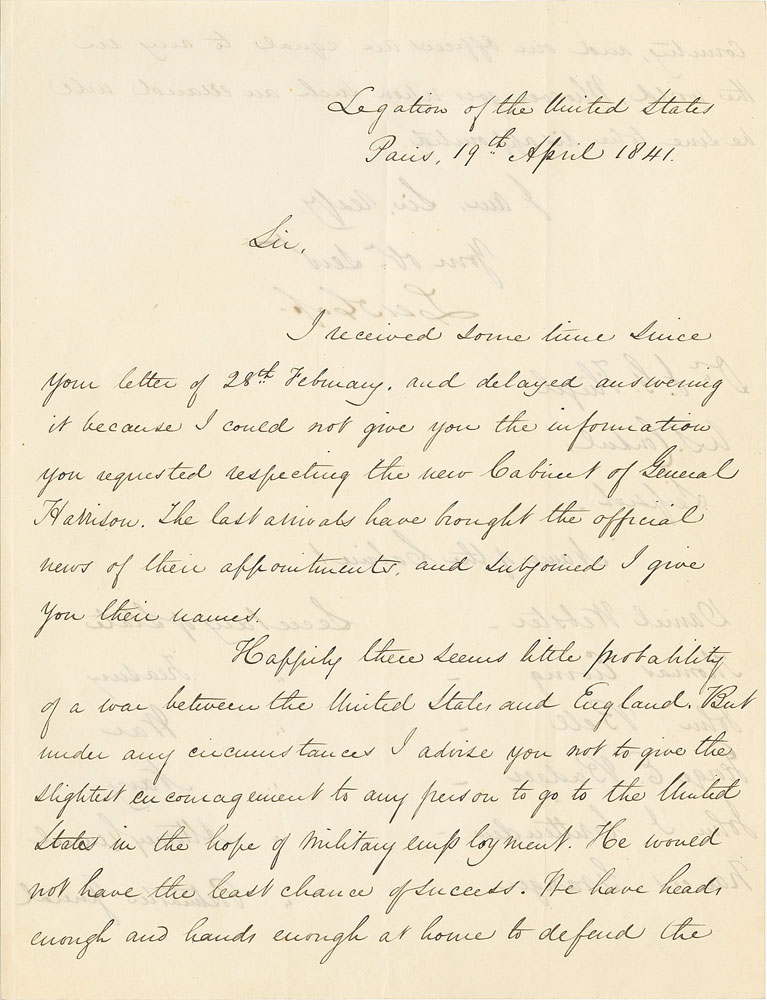 Legation of the United States
Paris, 19th April 1841.
Sir,
I received some time since
your letter of 28th February, and delayed answering
it because I could not give you the information
you requested respecting the new Cabinet of General
Harrison. The last arrivals have brought the official
news of their appointments, and subjoined I give
you their names.
Happily there seems little probability
of a war between the United States and England. But
under any circumstances I advise you not to give the
slightest encouragement to any person to go to the United
States in the hope of military employment. He would
not have the least chance of success. We have heads
enough and hands enough at home to defend the